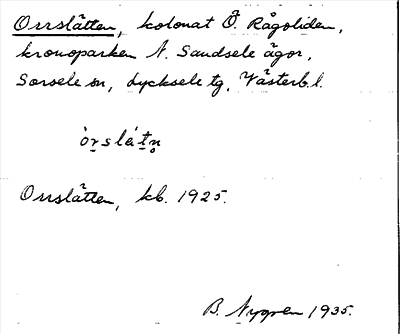 Orrslåtten, kolonat Ö. Rågoliden,
kronoparken N. Sandsele ägor,
Sorsele sn, Lycksele tg, Västerb. l.
òrslátn
Orrslåtten, kb. 1925.
B. Nygren 1935.